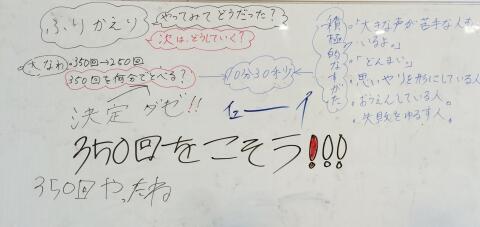 ふりかえり
やってみてどうだった?
次は、どうしていく?
大なわ
350回→250回
350回を何分でとべる?
10分30秒
決定ダゼ!!
350回をこそう!!!
350回やったね
積極的なすがた
・「大きな声が苦手な人もいるよ。」
・「どんまい」
・思いやりを形にしている人
・おうえんしている人。
・失敗をゆるす人。